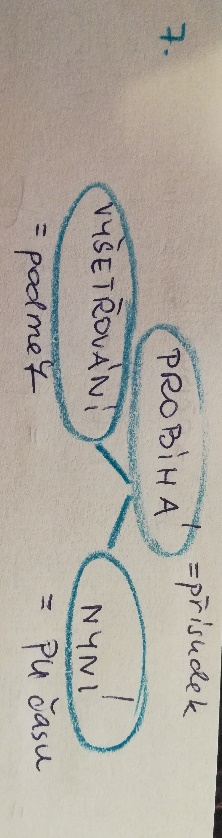 7.
PROBÍHÁ = přísudek
VYŠETŘOVÁNÍ
= podmět
NYNÍ
= PU času